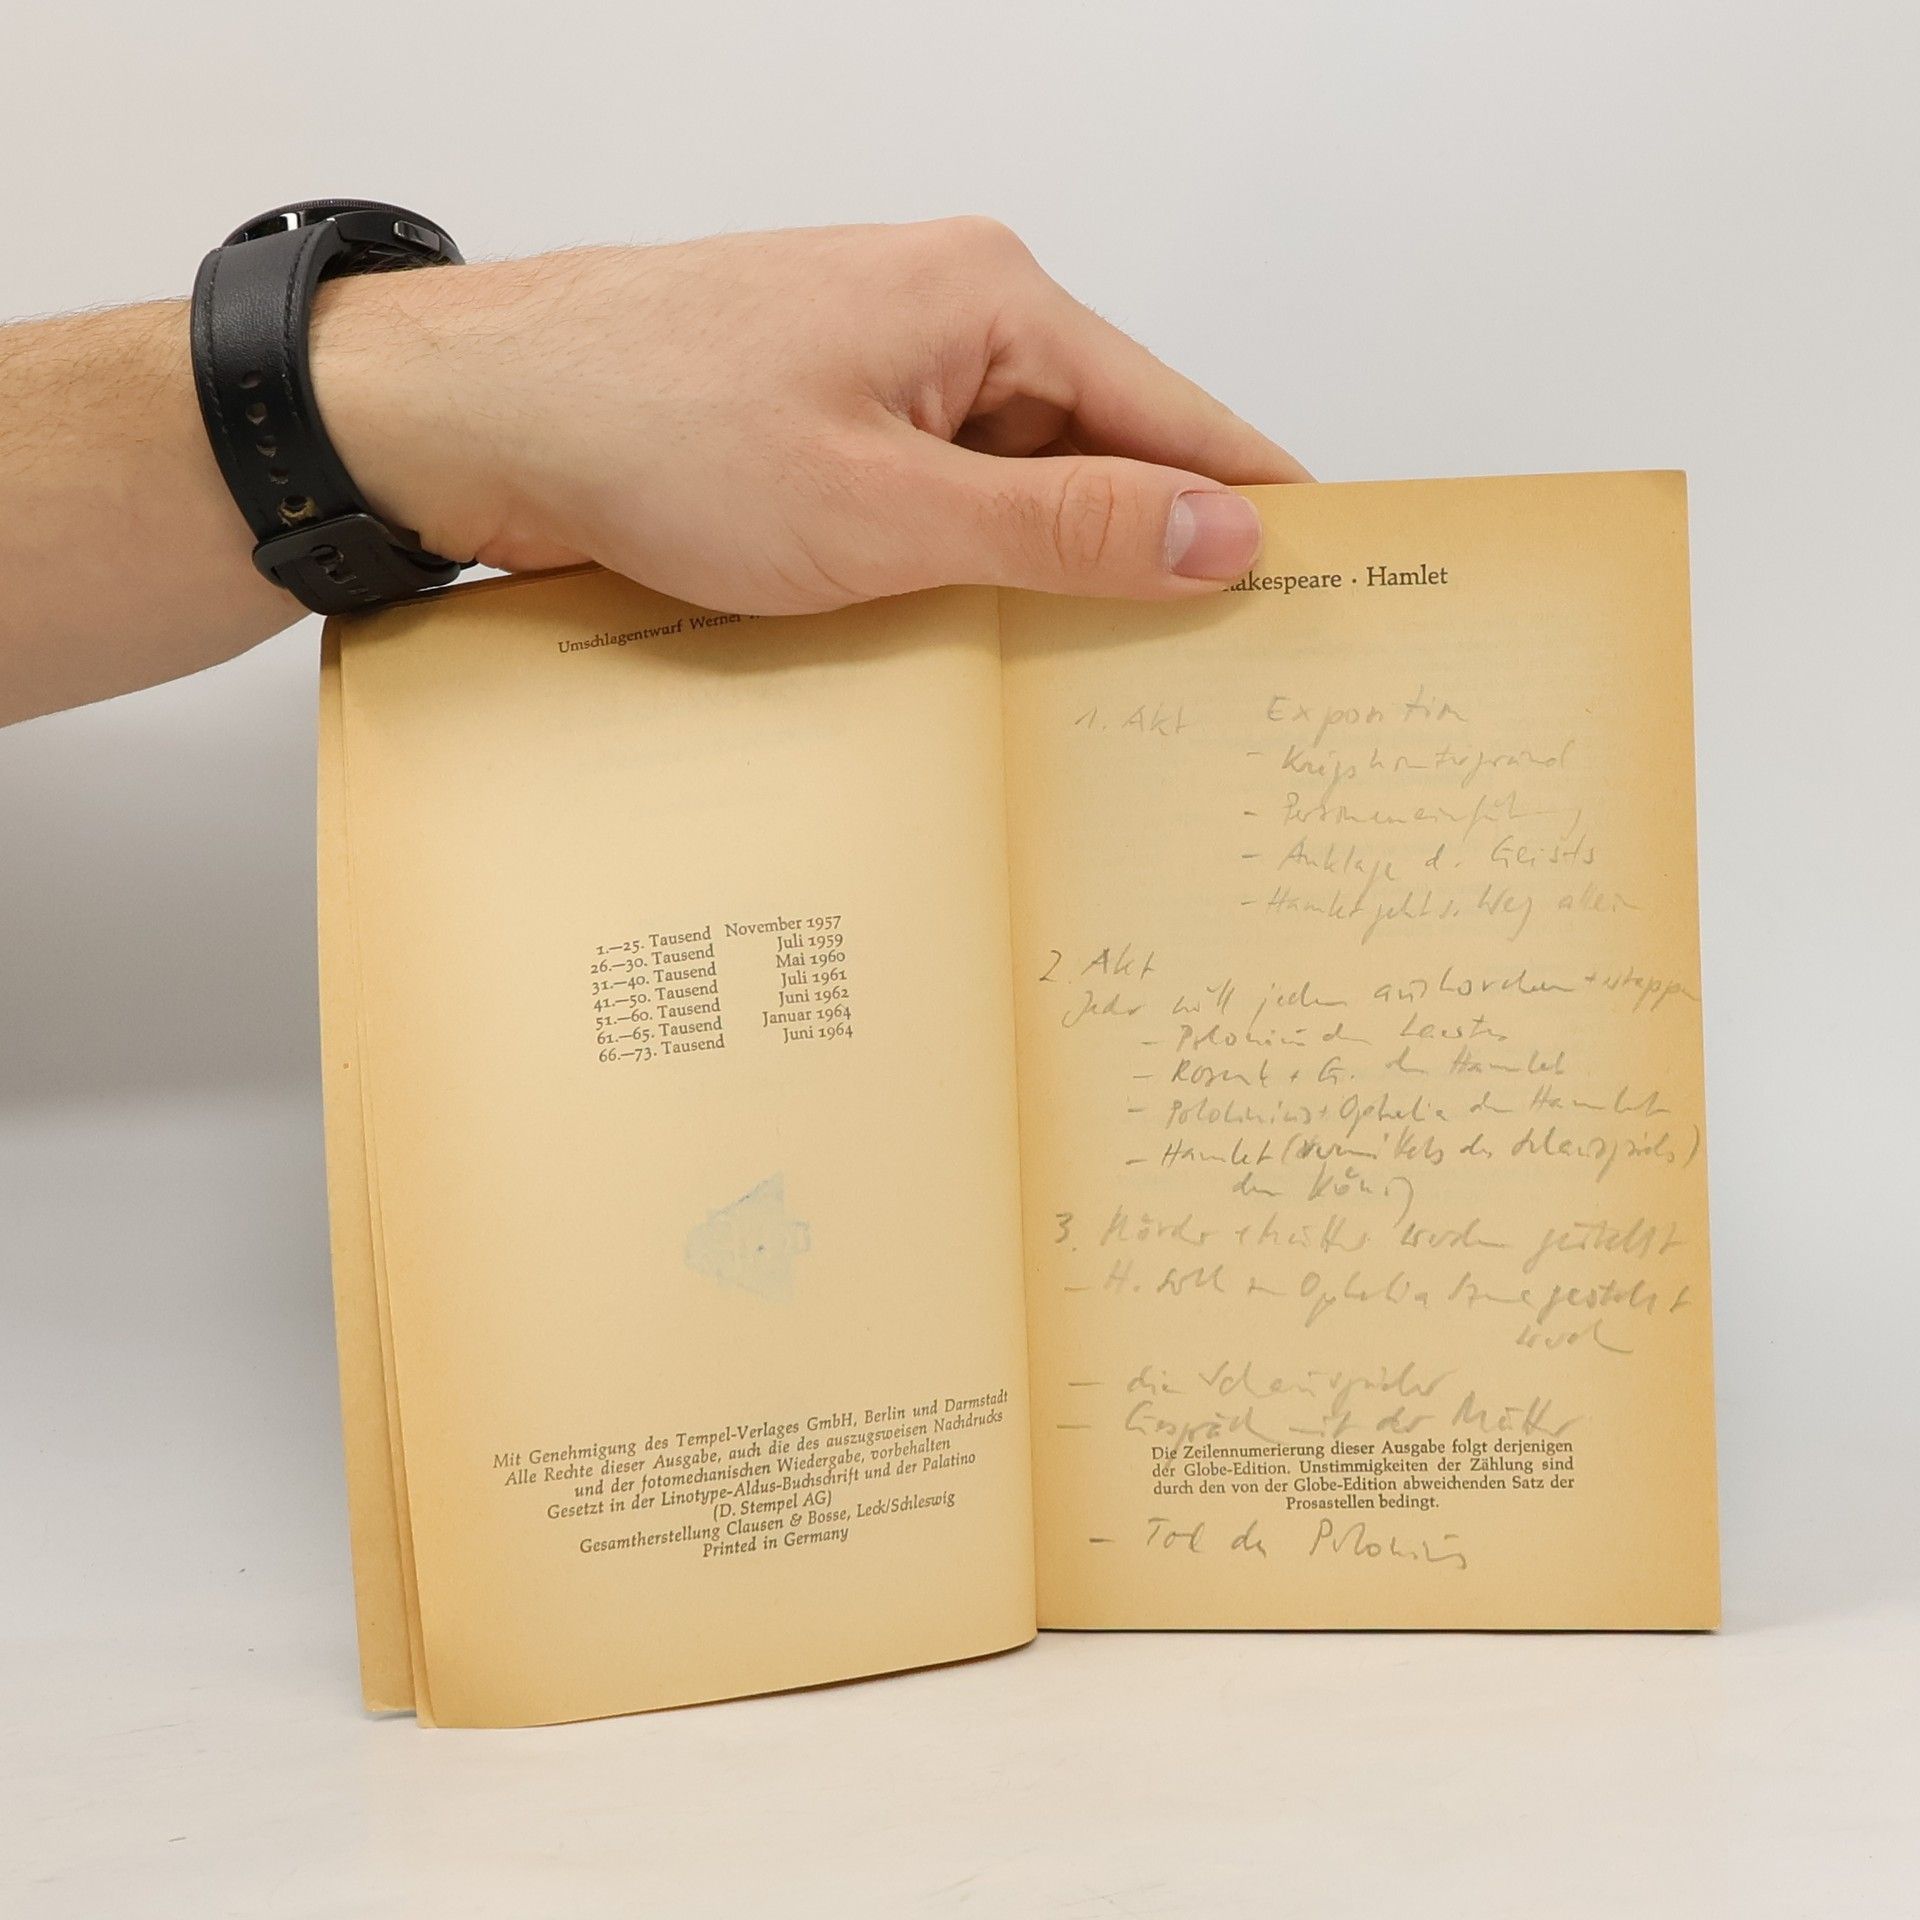 Umschlagentwurf Werner
1.—25. Tausend November 1957
26.—30. Tausend Juli 1959
31.—40. Tausend Mai 1960
41.—50. Tausend Juli 1961
51.—60. Tausend Juni 1962
61.—65. Tausend Januar 1964
66.—73. Tausend Juni 1964
Mit Genehmigung des Tempel-Verlages GmbH, Berlin und Darmstadt
Alle Rechte dieser Ausgabe, auch die des auszugsweisen Nachdrucks
und der fotomechanischen Wiedergabe, vorbehalten
Gesetzt in der Linotype-Aldus-Buchschrift und der Palatino
(D. Stempel AG)
Gesamtherstellung Clausen & Bosse, Leck/Schleswig
Printed in Germany
akespeare · Hamlet
1. Akt Exposition
- Kriegshintergrund
- Personeneinführung
- Anklage d. Geists
- Hamlet geht s. Weg allein
2. Akt
Jeder will jeden aushorchen +
- Polonius den Laertes
- Rosenk + G. den Hamlet
- Polonius + Ophelia den Hamlet
- Hamlet (vermittels des Schauspiels)
den König
3. Mörder + Mutter werden gestellt
- H. soll in Ophelia Szene gestellt
werd
- die Schauspieler
- Gespräch mit der Mutter
Die Zeilennumerierung dieser Ausgabe folgt derjenigen
der Globe-Edition. Unstimmigkeiten der Zählung sind
durch den von der Globe-Edition abweichenden Satz der
Prosastellen bedingt.
- Tod des Polonius